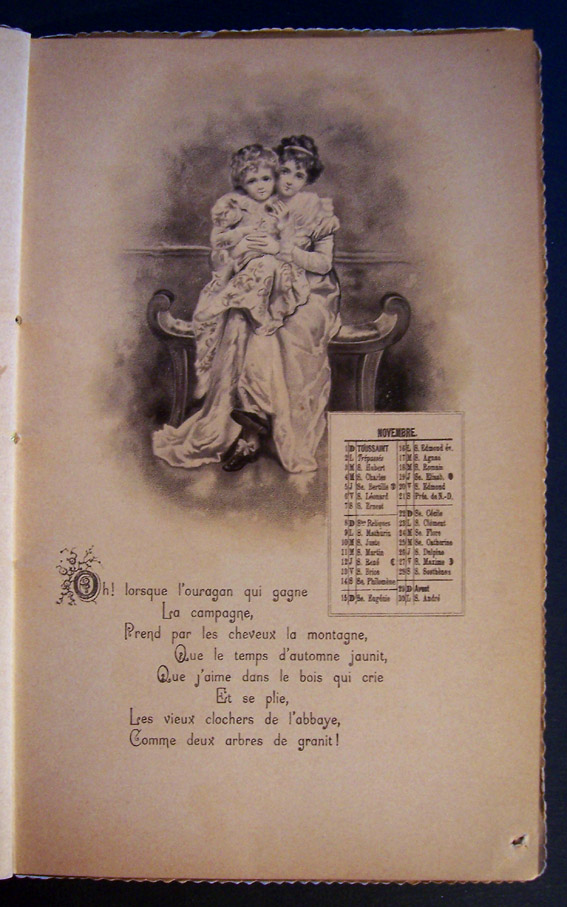 NOVEMBRE.
1 D TOUSSAINT
2 L Trépassés
3 M S. Hubert
4 M S. Charles
5 J Se. Bertille
6 V S. Léonard
7 S S. Ernest
8 D Stes Reliques
9 L S. Mathurin
10 M S. Juste
11 M S. Martin
12 J S. René
13 V S. Brice
14 S Se. Philomène
15 D Se. Eugénie
16 L S. Edmond év.
17 M S. Agnan
18 M S. Romain
19 J Se. Élisab.
20 V S. Edmond
21 S Prés. de N.-D.
22 D Se. Cécile
23 L S. Clément
24 M Se. Flore
25 M Se. Catherine
26 J S. Delphine
27 V S. Maxime
28 S S. Sosthènes
29 D Avent
30 L S. André
Oh! lorsque l'ouragan qui gagne
La campagne,
Prend par les cheveux la montagne,
Que le temps d'automne jaunit,
Que j'aime dans le bois qui crie
Et se plie,
Les vieux clochers de l'abbaye,
Comme deux arbres de granit!